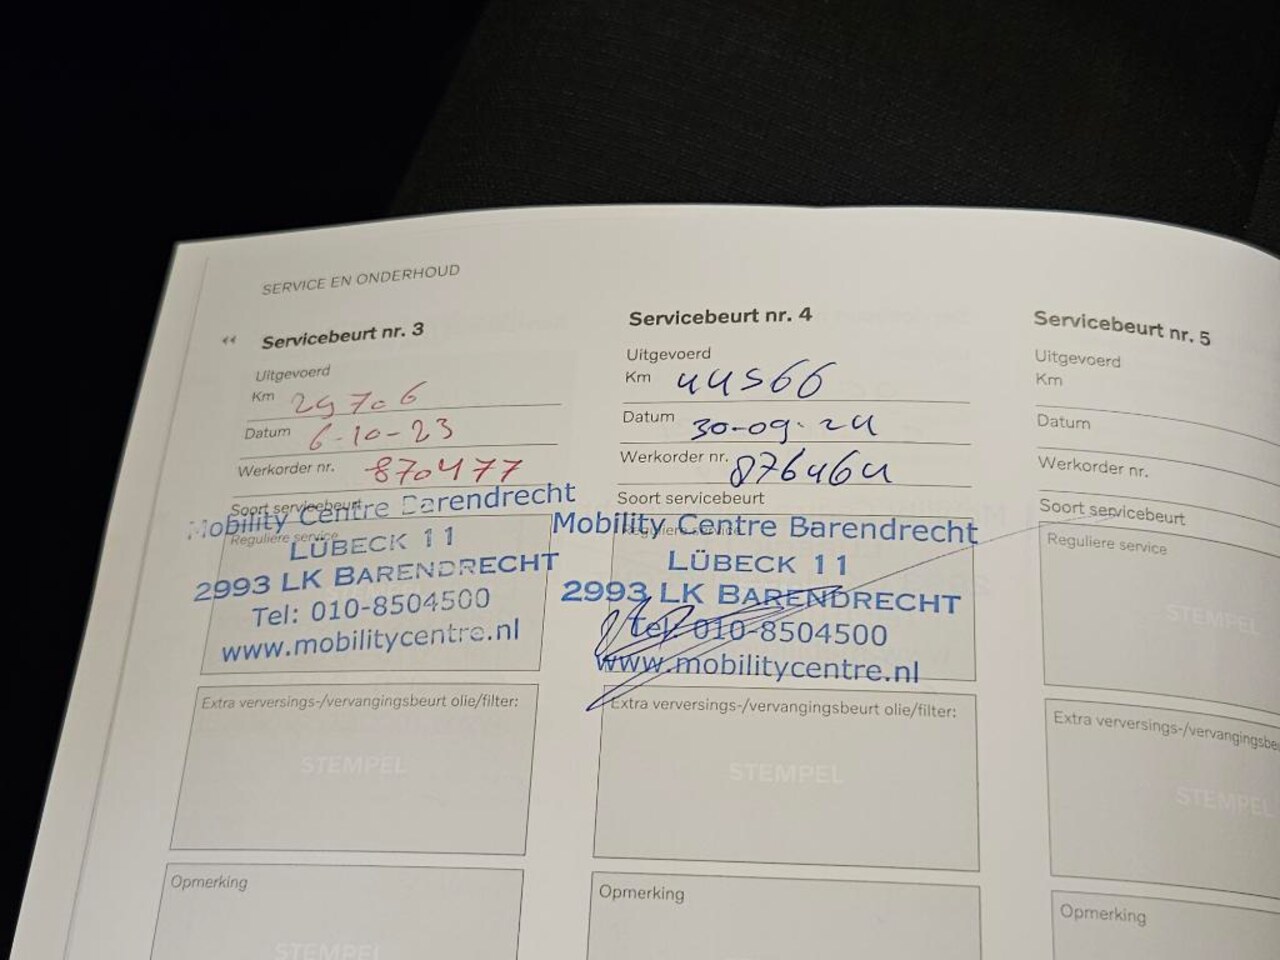 SERVICE EN ONDERHOUD
Servicebeurt nr. 3
Uitgevoerd
Km 29706
Datum 6-10-23
Werkorder nr. 870477
Soort servicebeurt
Reguliere service
Mobility Centre Barendrecht
LÜBECK 11
2993 LK BARENDRECHT
Tel: 010-8504500
www.mobilitycentre.nl
Extra verversings-/vervangingsbeurt olie/filter:
STEMPEL
Opmerking
STEMPEL
Servicebeurt nr. 4
Uitgevoerd
Km 44566
Datum 30-09-24
Werkorder nr. 876464
Soort servicebeurt
Reguliere service
Mobility Centre Barendrecht
LÜBECK 11
2993 LK BARENDRECHT
Tel: 010-8504500
www.mobilitycentre.nl
Extra verversings-/vervangingsbeurt olie/filter:
STEMPEL
Opmerking
Servicebeurt nr. 5
Uitgevoerd
Km
Datum
Werkorder nr.
Soort servicebeurt
Reguliere service
STEMPEL
Extra verversings-/vervangingsbe
STEMPEL
Opmerking